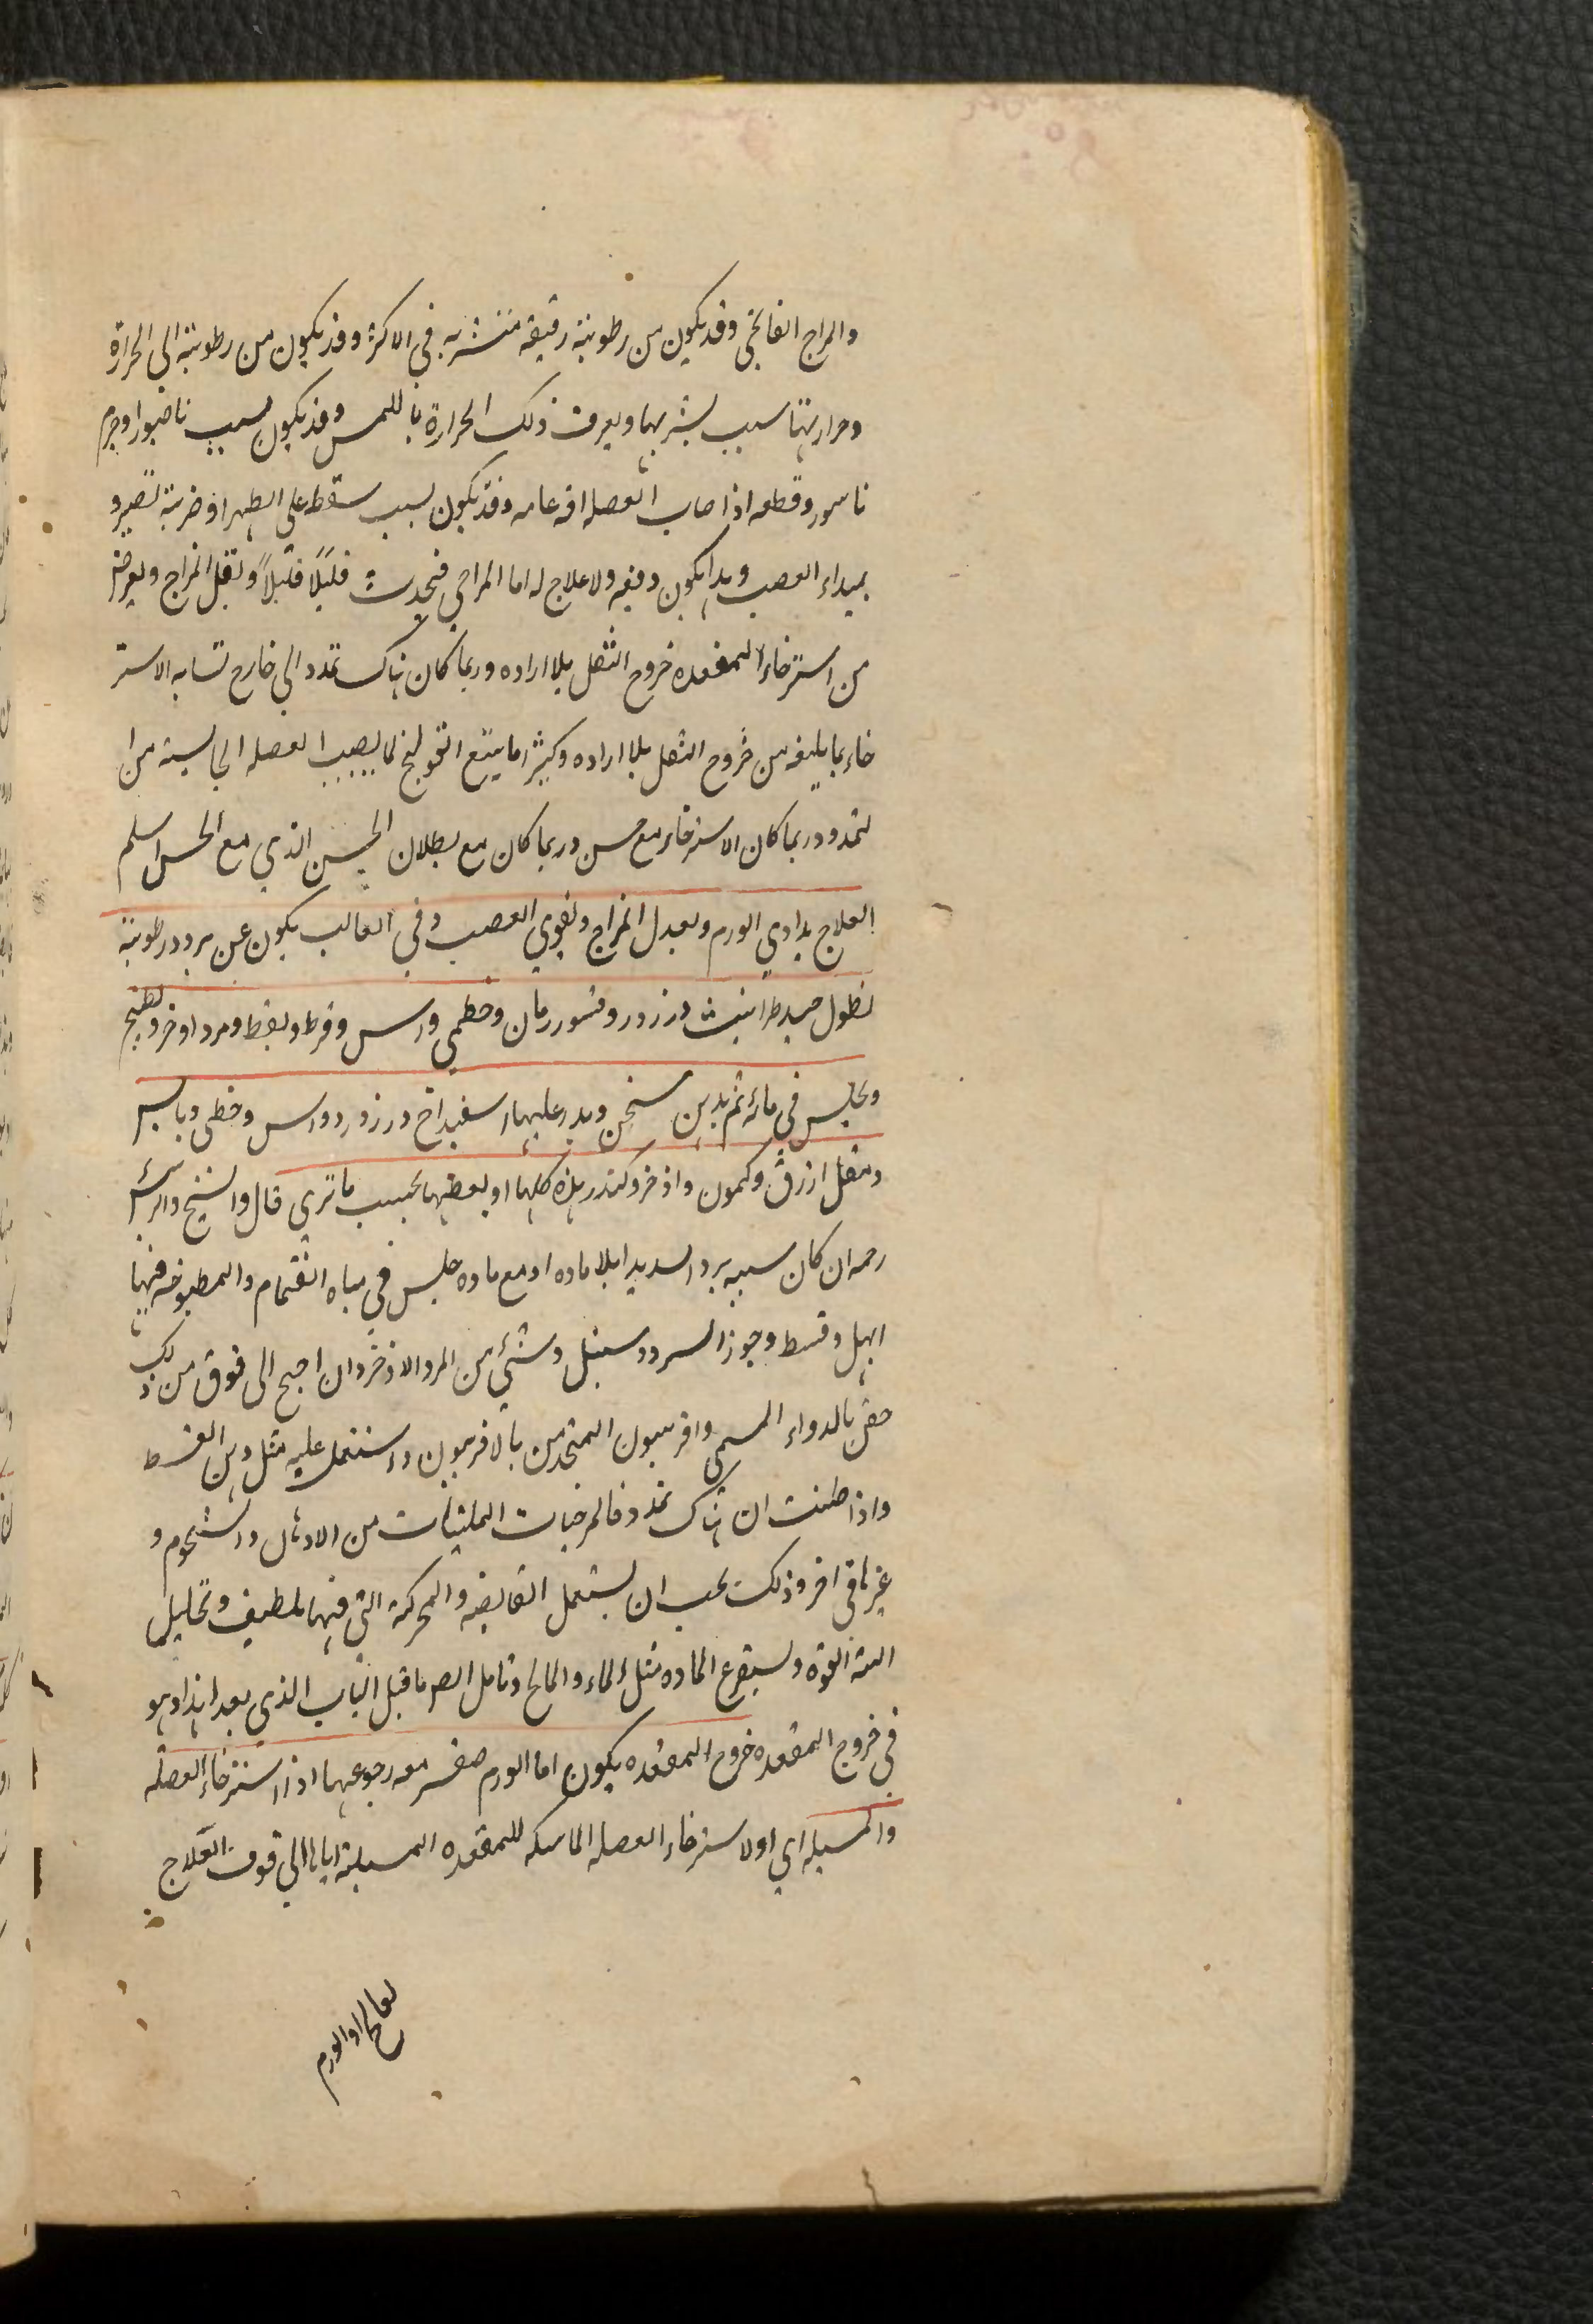 والمزاج الفالجي وقد يكون من رطوبة رقيقة متشربه في الاكثر وقد يكون من رطوبة الى الحرارة
وحرارتها سبب تشربها ويعرف ذلك الحرارة باللمس وقد يكون بسبب ناصور او جرم
ناسور وقطعه اذا صاب العضله افه عامه وقد يكون بسبب سقطه على الظهر او ضربة تضر و
بمبداء العصب وهذا يكون دفعه ولا علاج له اما المزاجي فيحدث قليلًا قليلًا ويقبل المزاج ويعرض
من استرخاء المقعده خروج الثفل بلا اراده وربما كان هناك تمدد الى خارج تشابه الاستر
خاء بما يليه من خروج الثفل بلا اراده وكثيرا ما يتبع القولنج لما يصيب العضله الحابسة من ا
لتمدد وربما كان الاسترخاء مع حس وربما كان مع بطلان الحس الذي مع الحس اسلم
العلاج يداوي الورم ويعدل المزاج ويقوي العصب وفي الغالب يكون عن برد ورطوبة
نطول جيد طراثيث ورزورد وقشور رمان وخطمي واس وقرط وبقط ومرد اوخر ويطبخ
ويجلس في مائه ثم يدهن سخن ويدر عليها اسفيداج ورزورد واس وخطمى ويابس
ومقل ازرق وكمون واذخر وكندر هذه كلها او بعضها بحسب ما تري قال والشيخ والرئيس
رحمه ان كان سببه بردا شديدا بلا ماده او مع ماده جلس في مياه القمقام والمطبوخه فيها
ابهل وقسط وجوز السرو وسنبل وشئ من المر والاذخر وان احتج الى فوق من ذلك
حقن بالدواء المسمى وافربيون المتخذ من بالافربيون واستعمل عليه مثل دهن القسط
واذا ظننت ان هناك تمدد فالمرخيات الملينات من الادهان والشحوم و
غيرها في اخر وذلك يجب ان يستعمل القابضه والمحركة التي فيها تلطيف وتحليل
القوة ويستفرغ الماده مثل الماء والمالح وتامل ايضا ما قبل الباب الذي بعد هذا وهو
في خروج المقعده خروج المقعده يكون اما الورم معه رجوعها اذا استرخاء العضله
والمسبله اي او لاسترخاء العضله الماسكه للمقعده المسبلة اياها الى فوق العلاج
يعالج او الورم